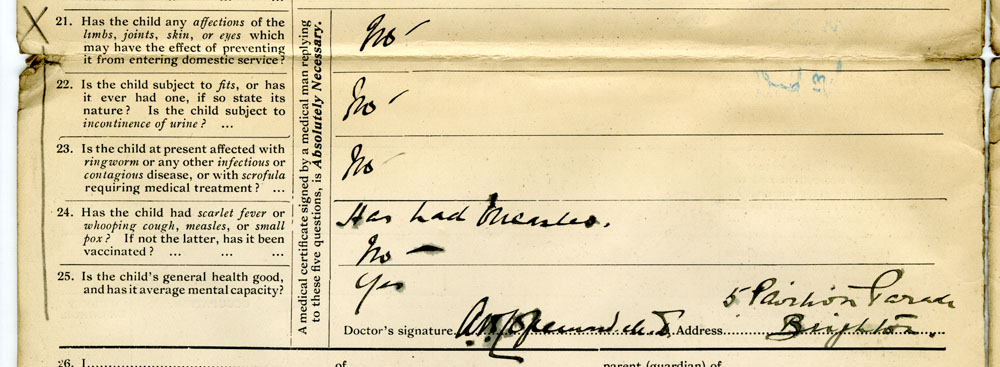 21. Has the child any affections of the
limbs, joints, skin, or eyes which
may have the effect of preventing
it from entering domestic service?
No
22. Is the child subject to fits, or has
it ever had one, if so state its
nature? Is the child subject to
incontinence of urine? ...
No
23. Is the child at present affected with
ringworm or any other infectious or
contagious disease, or with scrofula
requiring medical treatment? ...
No
24. Has the child had scarlet fever or
whooping cough, measles, or small
pox? If not the latter, has it been
vaccinated? ... ... ...
Has had Measles.
No —
25. Is the child's general health good,
and has it average mental capacity?
Yes
A medical certificate signed by a medical man replying
to these five questions, is Absolutely Necessary.
5 Pavilion Parade
Doctor's signature Address Brighton.
26. I of parent (guardian) of